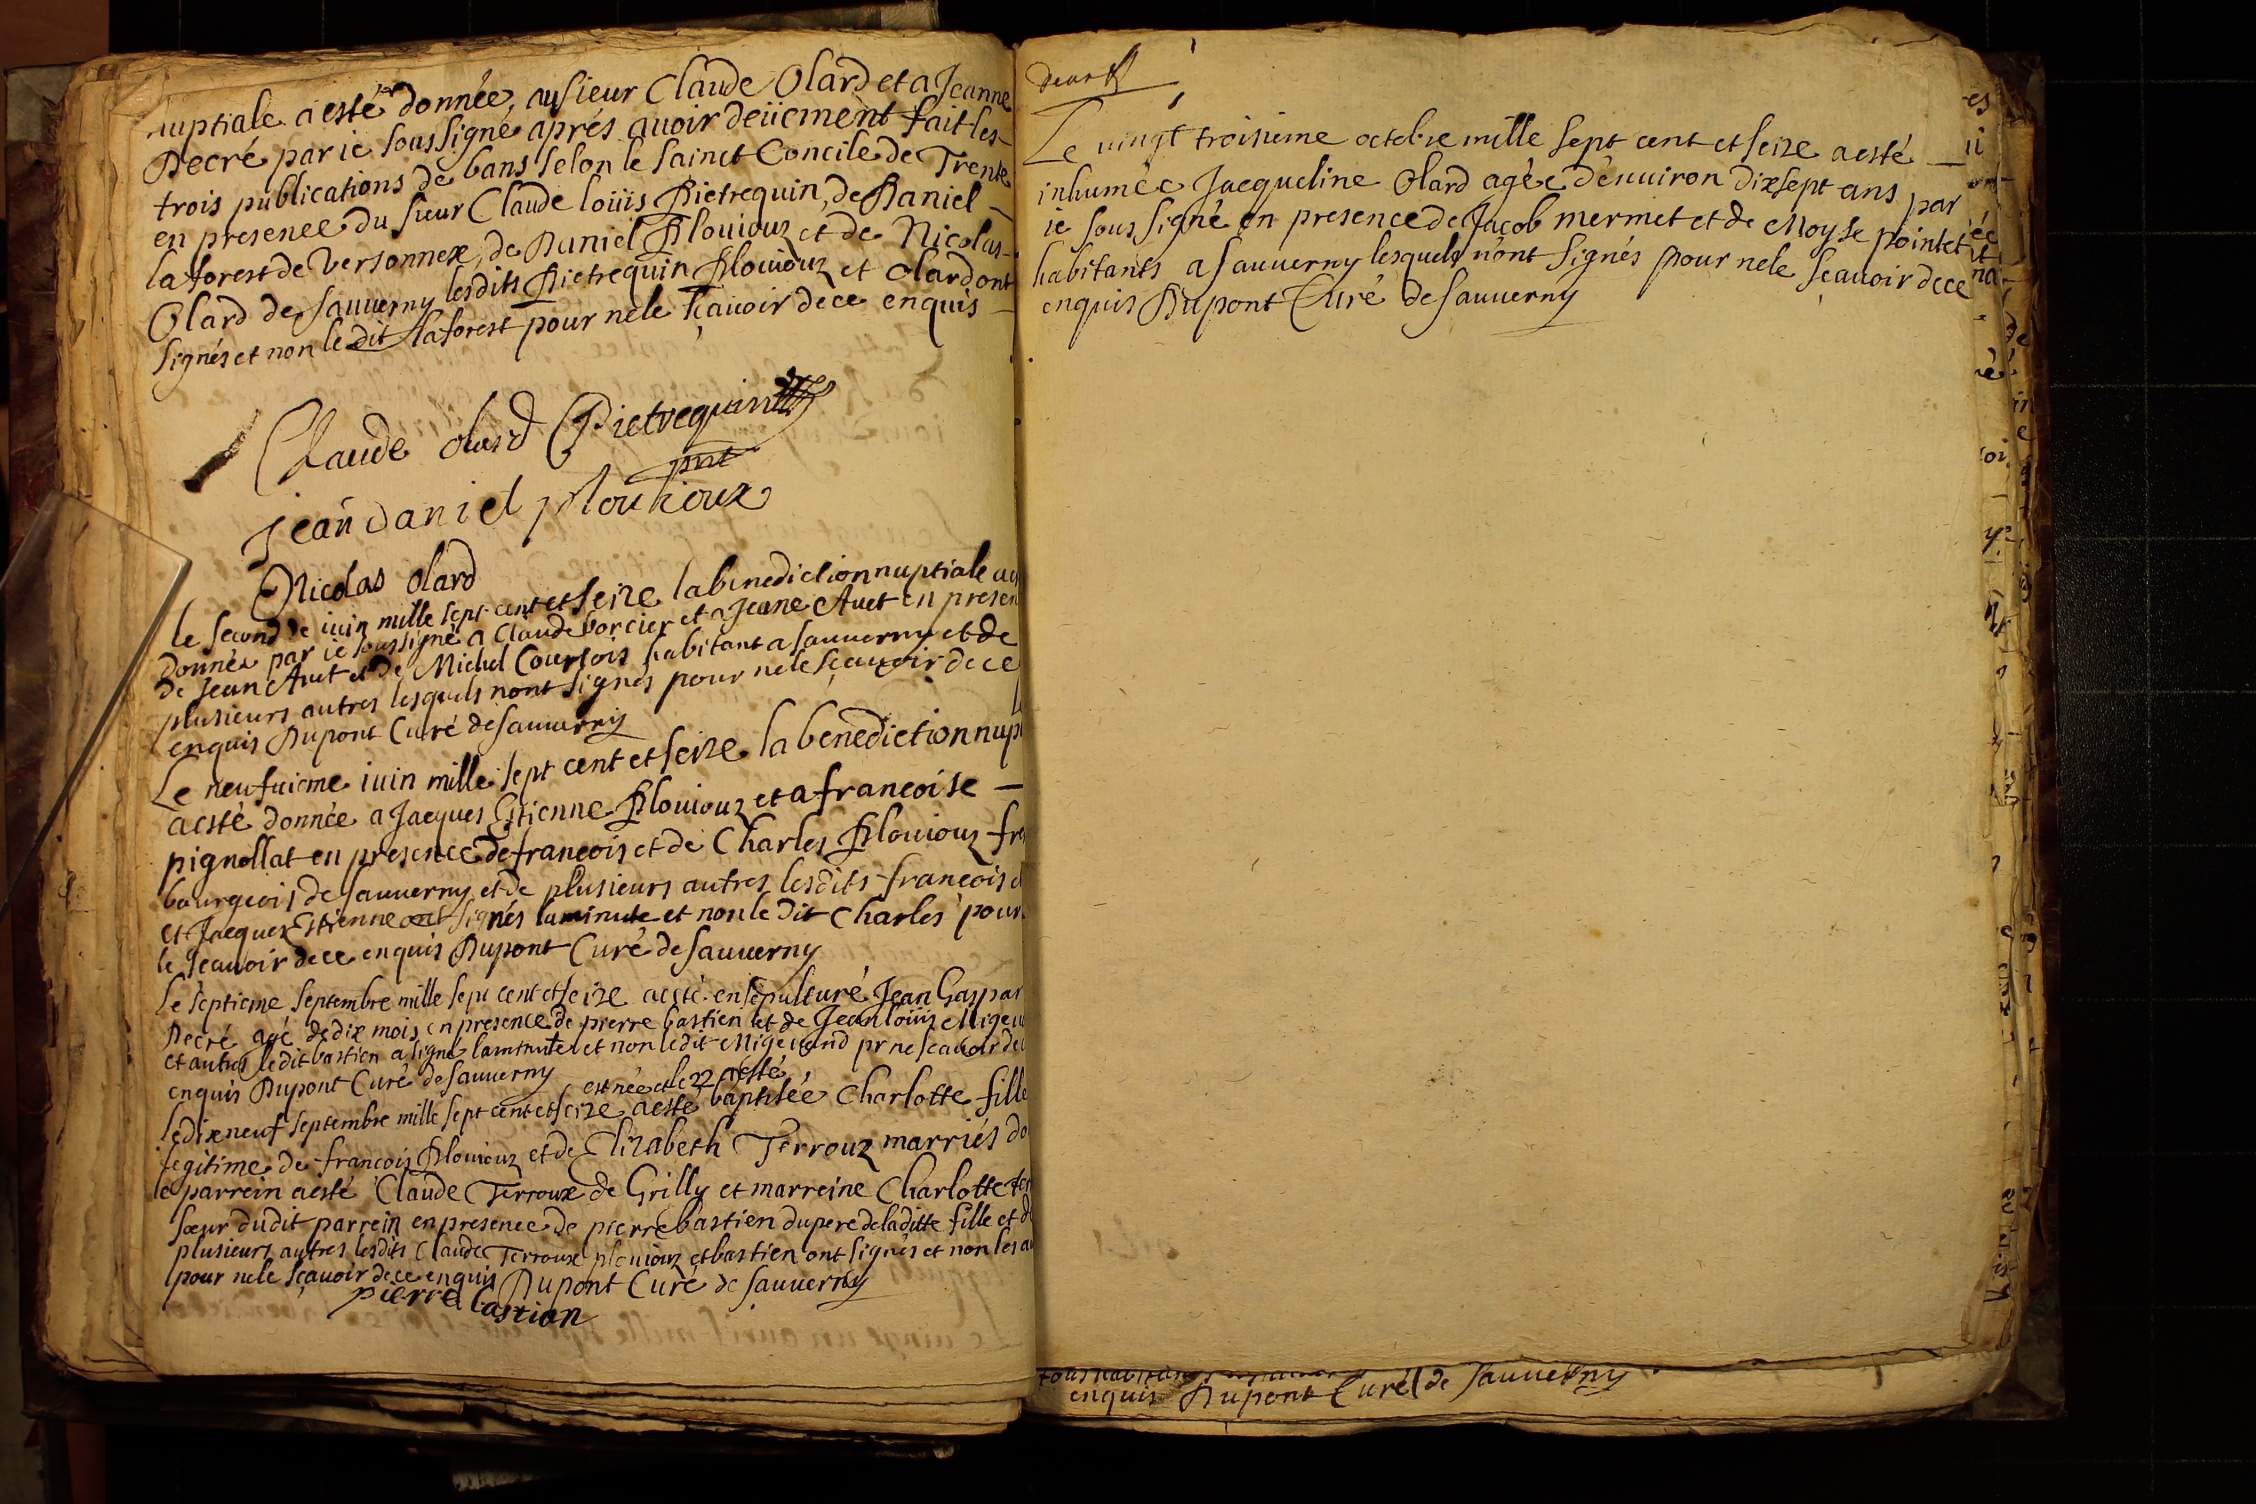 nuptiale a esté donnée, au sieur Claude Olard et a Jeanne
Decré par ie soussigné aprés auoir deüement fait les
trois publications de bans selon le sainct Concile de Trente
en presence du sieur Claude loüis Pietrequin, de Daniel
la forest de Versonnex, de Daniel Plouiouz et de Nicolas
Olard de sauuerny lesdits Pietrequin Plouiouz et Olard ont
signés et non le dit laforest pour ne le sçauoir de ce enquis
Claude olard Pietrequin
pnt
jean daniel plouioux
Nicolas olard
le second de iuin mille sept cent et seize la benediction nuptiale a
donnée par ie soussigné a Claude borcier et a Jeane Auet en presen
de Jean Auet et de Michel Courtois habitant a sauuerny et de
plusieurs autres lesquels nont signés pour ne le sçauoir de ce
enquis Dupont Curé de sauuerny
Le neufuieme iuin mille sept cent et seize la benediction nup
a esté donnée a Jacques Estienne Plouiouz et a francoise
pignollat en presence de francois et de Charles Plouiouz fre
bourgeois de sauuerny et de plusieurs autres lesdits francois
et Jacques Estienne ont signés la minute et non le dit Charles pour
le sçauoir de ce enquis Dupont Curé de sauuerny
le septieme septembre mille sept cent et seize a esté ensepulturé Jean Gaspar
Decré agé de dix mois en presence de pierre bastien et de Jean loüis Migeu
et autres ledit bastien a signé la minute et non ledit Migeuand pr ne scauoir de
enquis Dupont Curé de sauuerny
est née et le 22 a esté
le dixneuf septembre mille sept cent et seize a esté baptisée Charlotte fille
legitime de francois Plouiouz et de Elizabeth Terrouz marriés do
le parrein a esté Claude Terroux de Grilly et marreine Charlotte ter
sœur dudit parrein en presence de pierre bastien du pere de laditte fille et d
plusieurs autres lesdits Claude Terroux plouiouz et bastien ont signés et non les au
pour ne le sçauoir de ce enquis Dupont Curé de sauuerny
pierre bastian
Le vingt troisieme octobre mille sept cent et seize a esté
inhumée Jacqueline Olard agée d'enuiron dix sept ans par
ie soussigné en presence de Jacob mermet et de Moyse pointet
habitants a sauuerny lesquels n'ont signés pour ne le sçauoir de ce
enquis Dupont Curé de sauuerny
enquis Dupont Curé de sauuerny